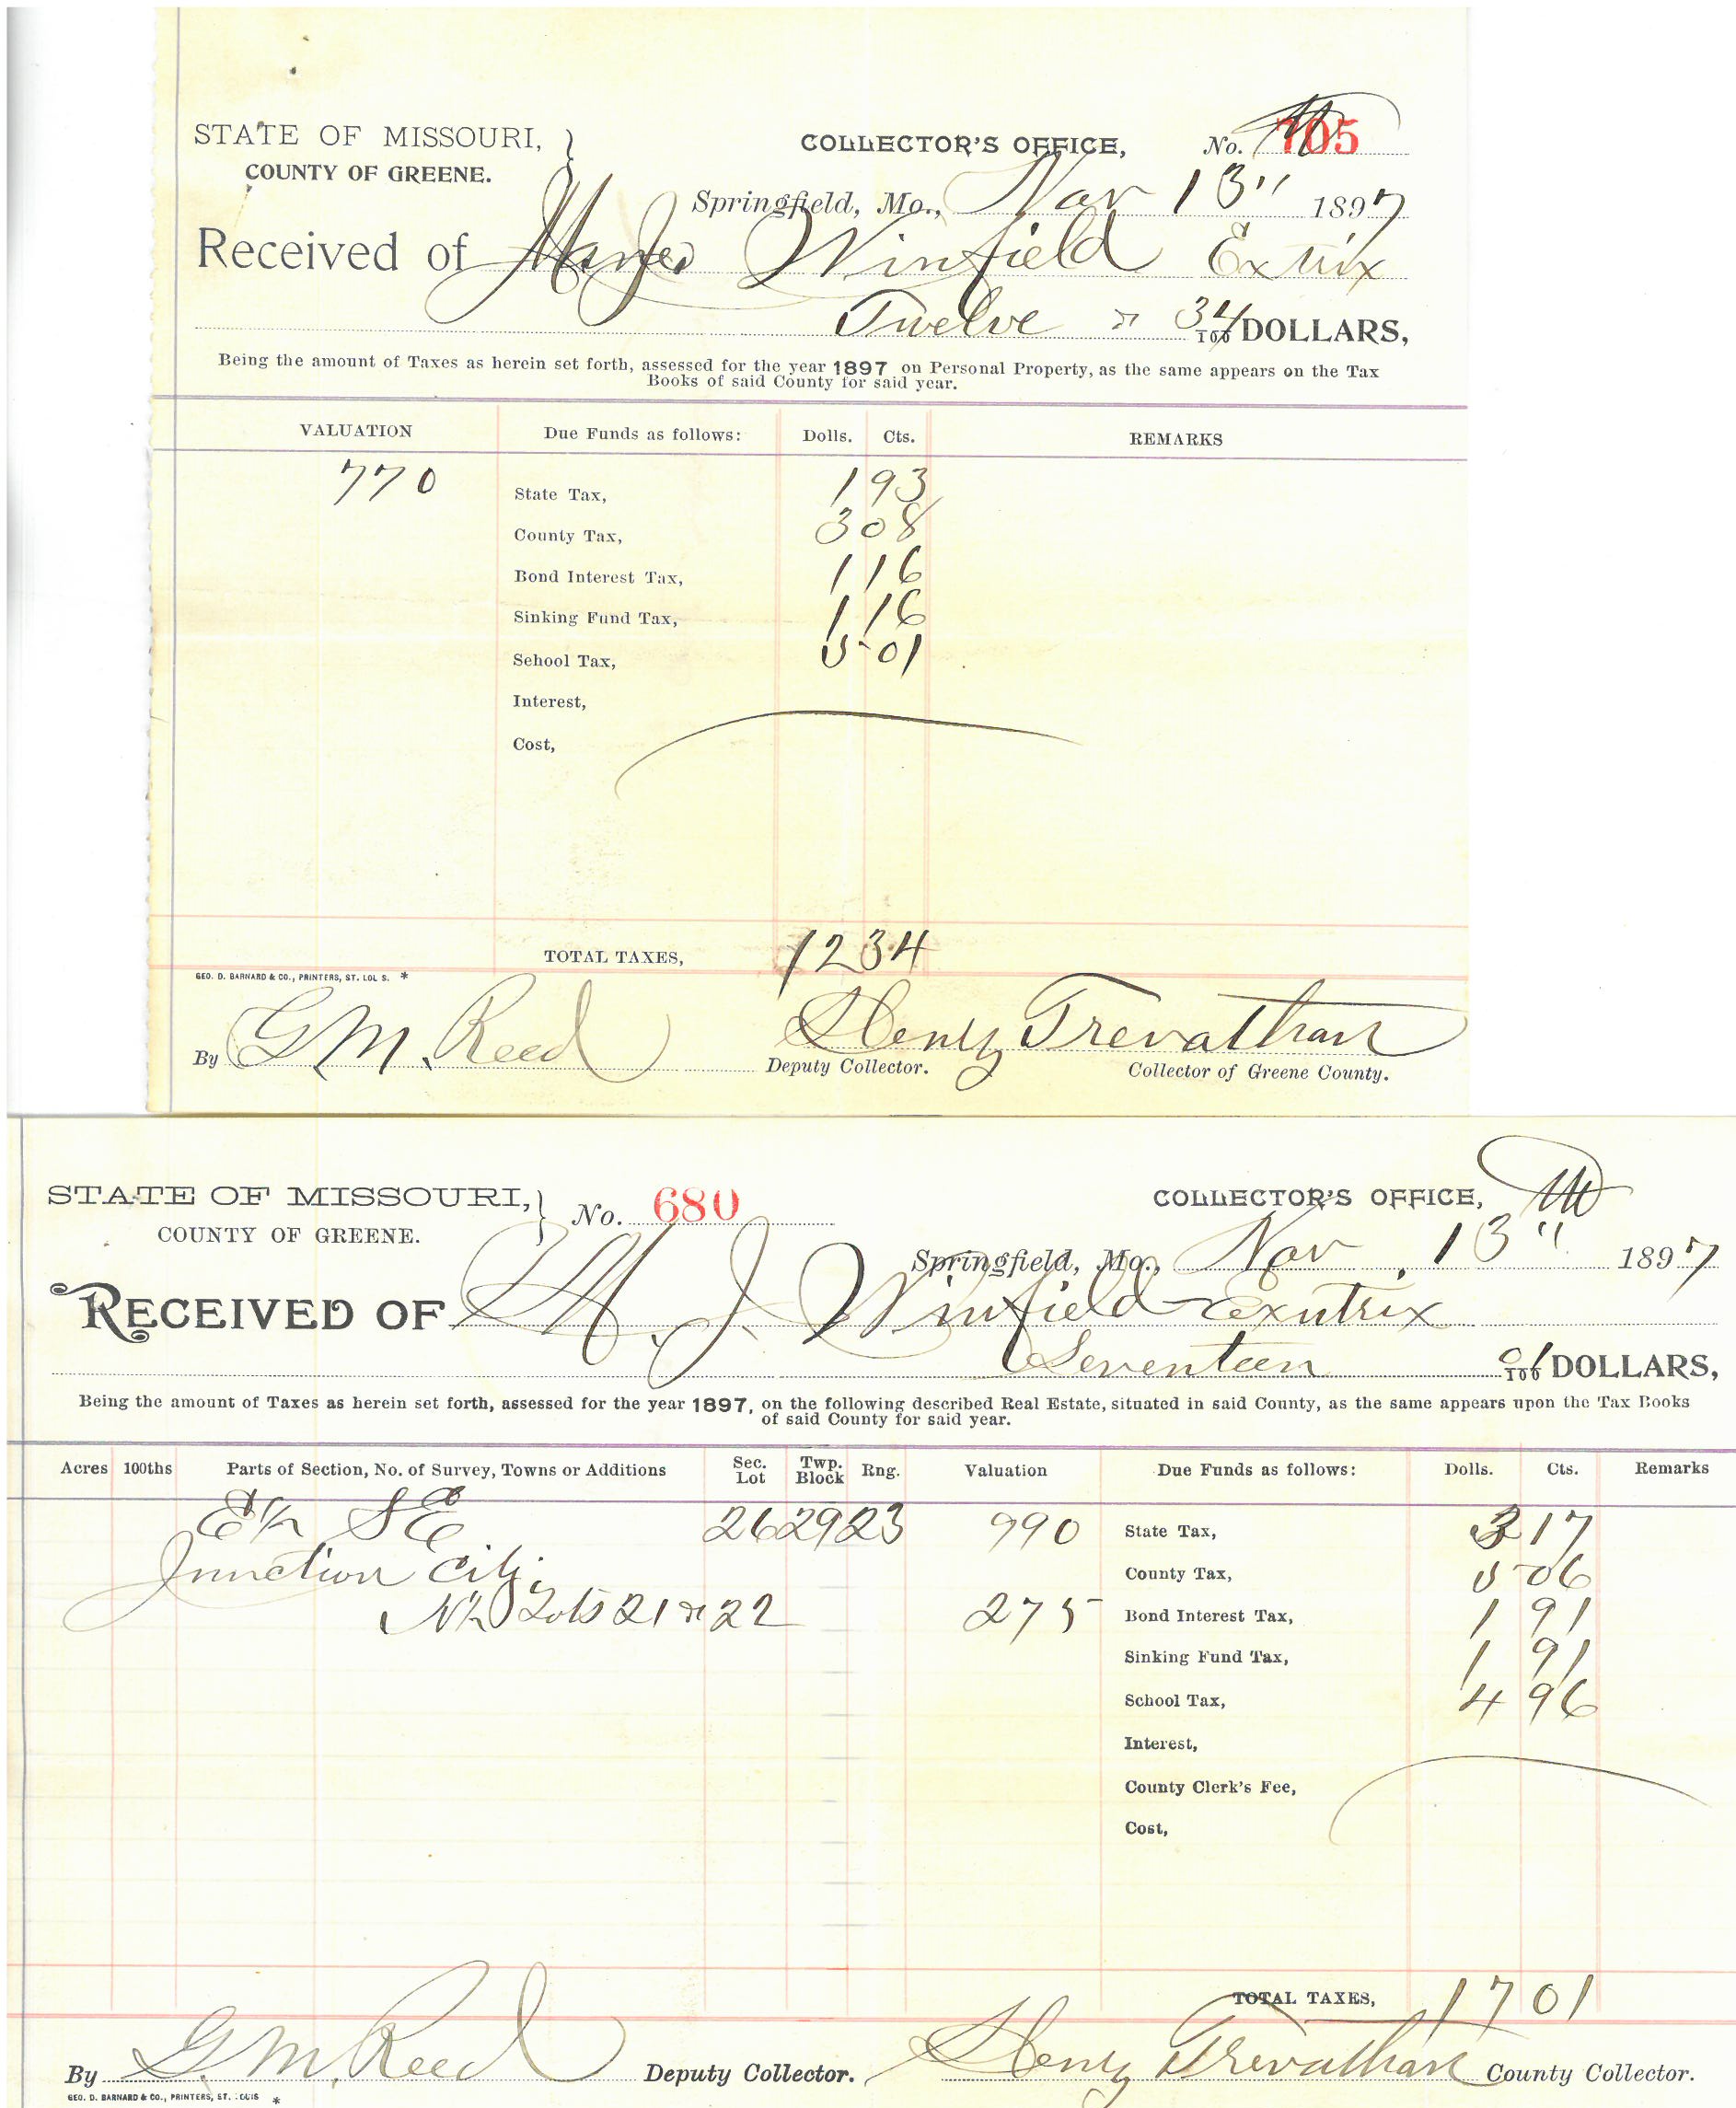 STATE OF MISSOURI, } COLLECTOR'S OFFICE, No. 705
COUNTY OF GREENE.
Springfield, Mo., Nov 13" 1897
Received of Winfield Extrix
Twelve & 34/100 DOLLARS,
Being the amount of Taxes as herein set forth, assessed for the year 1897 on Personal Property, as the same appears on the Tax
Books of said County for said year.
VALUATION Due Funds as follows: Dolls. Cts. REMARKS
770 State Tax, 1 93
County Tax, 3 08
Bond Interest Tax, 1 16
Sinking Fund Tax, 1 16
School Tax, 5 01
Interest,
Cost,
TOTAL TAXES, 12 34
GEO. D. BARNARD & CO., PRINTERS, ST. LOUIS. *
By G. M. Reed Deputy Collector. Henry Trevathan Collector of Greene County.
STATE OF MISSOURI, } No. 680 COLLECTOR'S OFFICE,
COUNTY OF GREENE.
Springfield, Mo., Nov. 13" 1897
RECEIVED OF M. J. Winfield Exutrix
Seventeen 01/100 DOLLARS,
Being the amount of Taxes as herein set forth, assessed for the year 1897, on the following described Real Estate, situated in said County, as the same appears upon the Tax Books
of said County for said year.
Acres 100ths Parts of Section, No. of Survey, Towns or Additions Sec. Lot Twp. Block Rng. Valuation Due Funds as follows: Dolls. Cts. Remarks
E½ SE 26 29 23 990 State Tax, 3 17
Junction City County Tax, 5 06
N½ Lots 21 & 22 275 Bond Interest Tax, 1 91
Sinking Fund Tax, 1 91
School Tax, 4 96
Interest,
County Clerk's Fee,
Cost,
TOTAL TAXES, 17 01
By G. M. Reed Deputy Collector. Henry Trevathan County Collector.
GEO. D. BARNARD & CO., PRINTERS, ST. LOUIS *